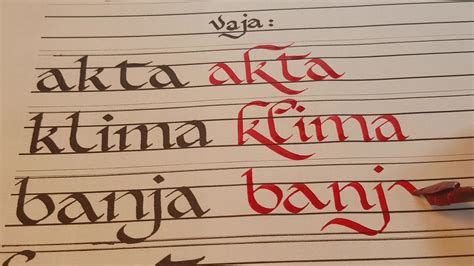 Vaja:
akta akta
klima klima
banja banj